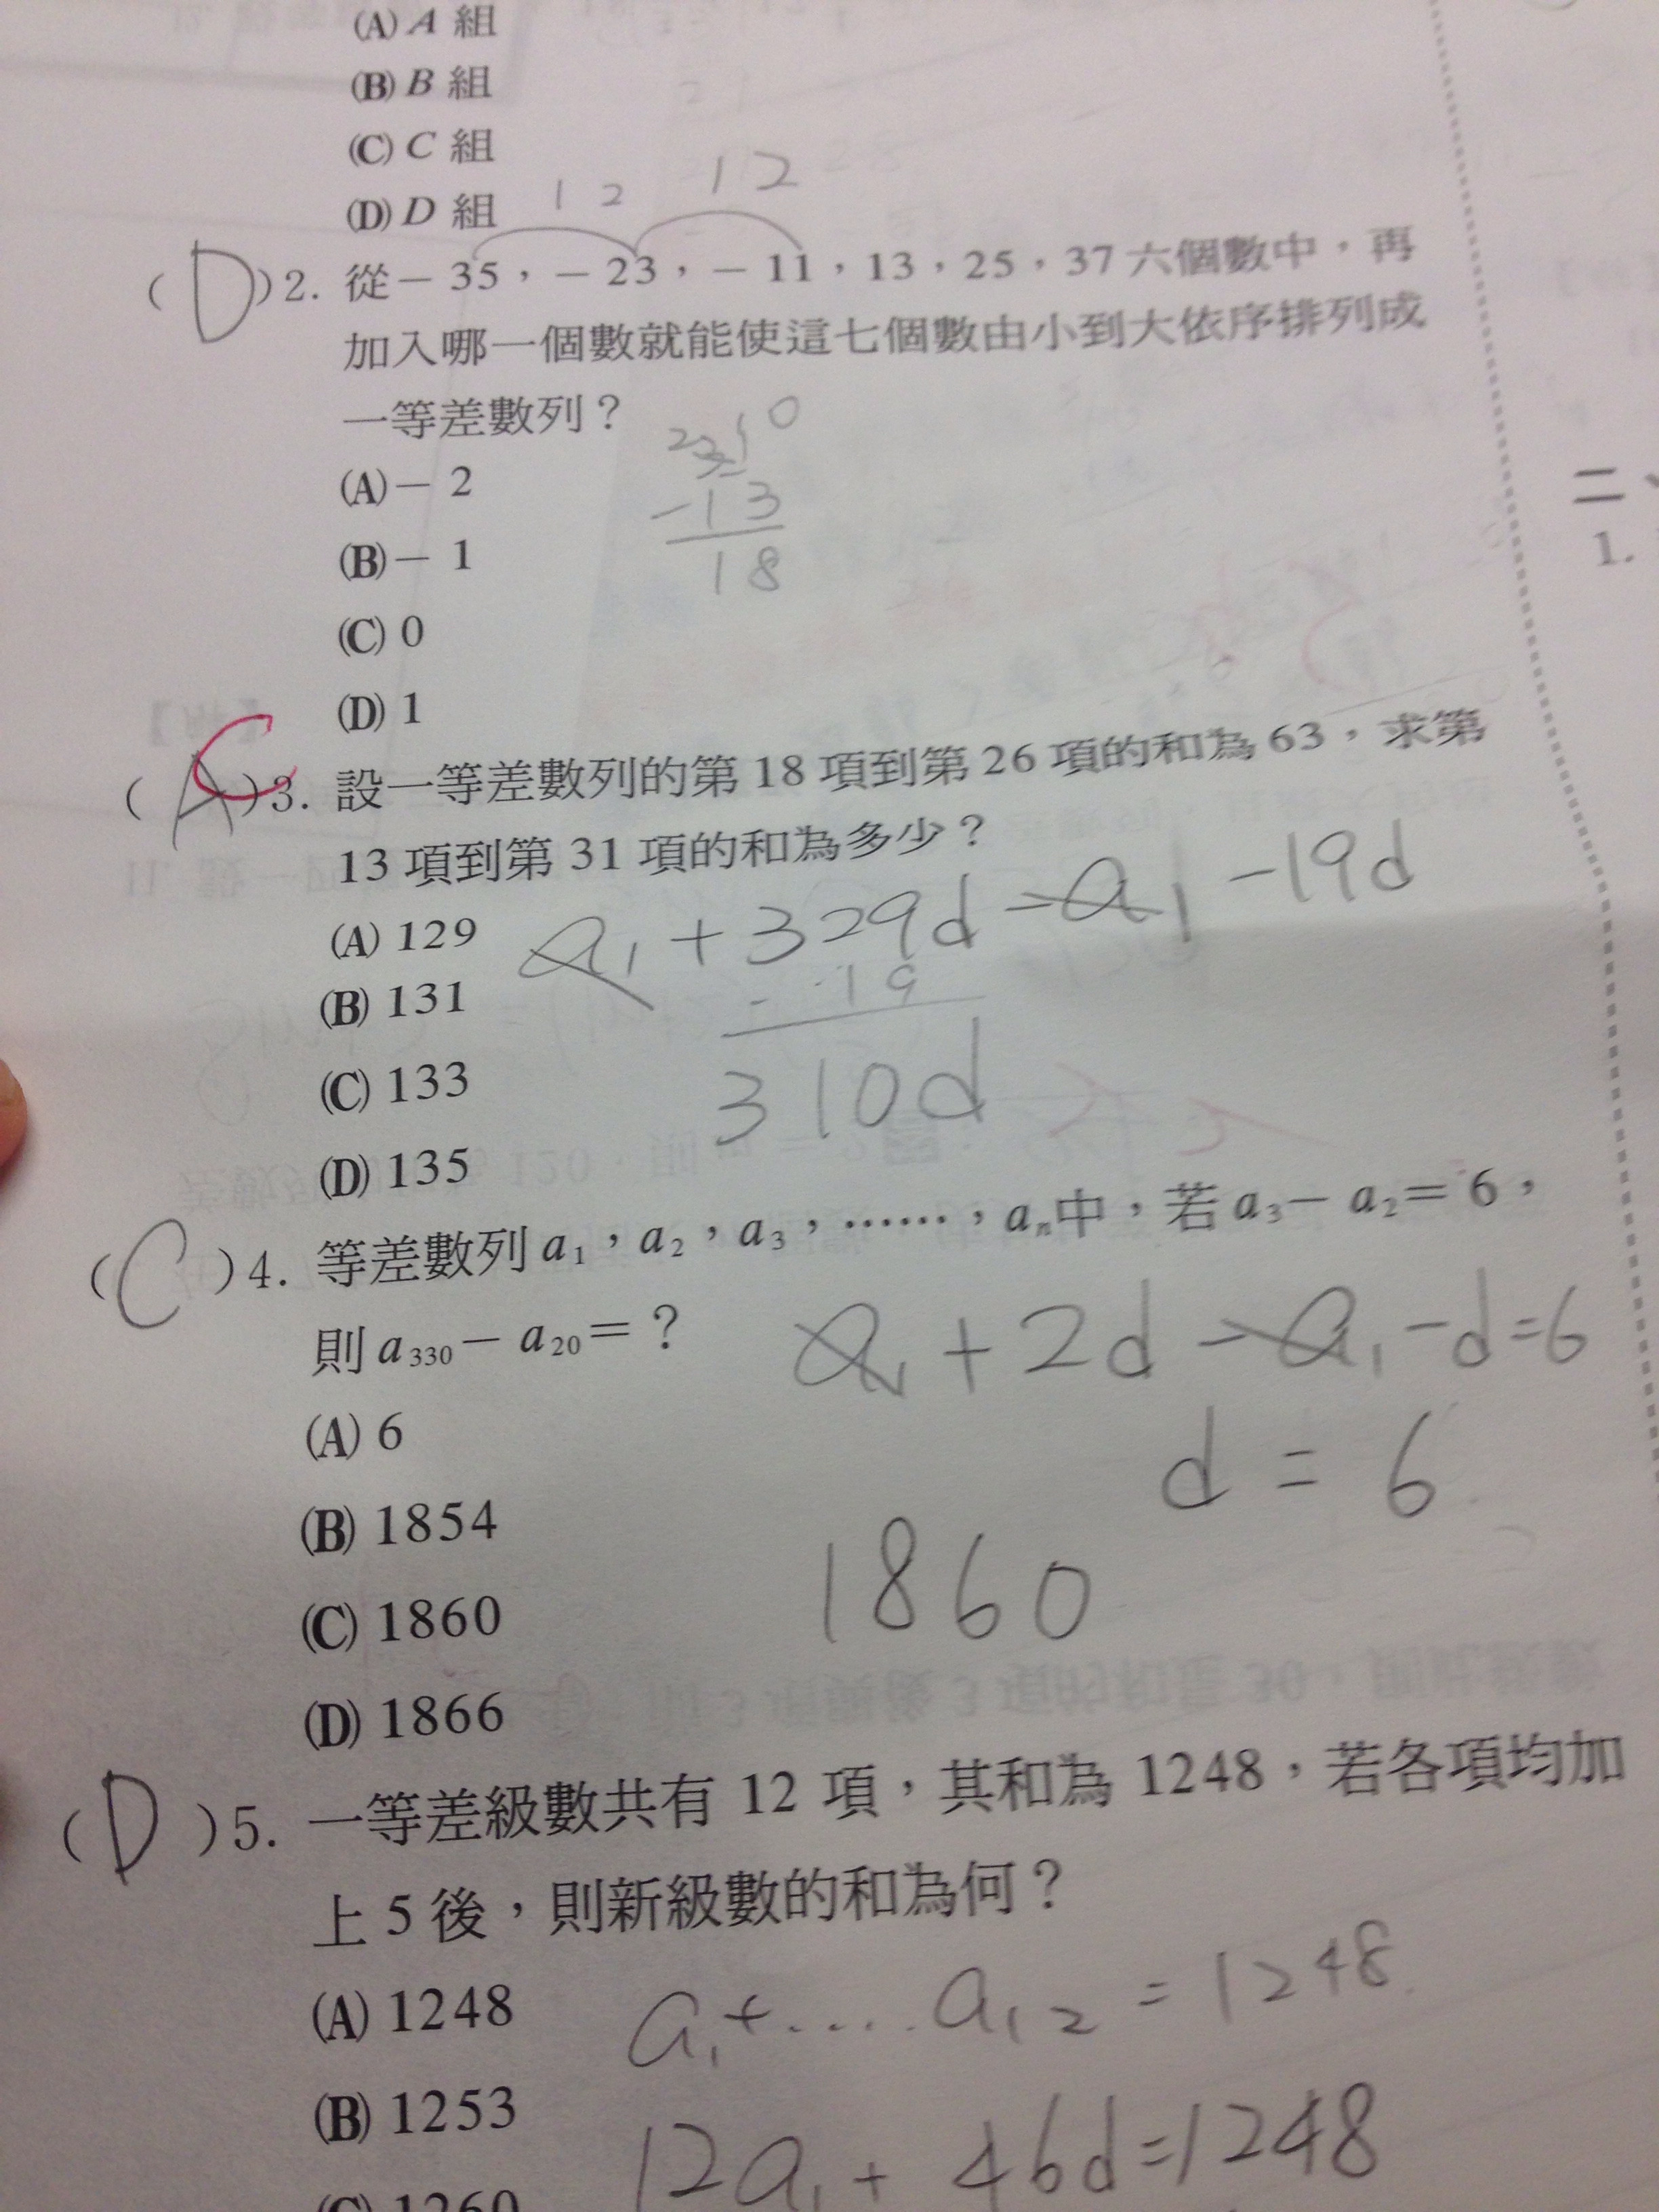 (A) A 組
(B) B 組
(C) C 組
(D) D 組
12 12
( D )2. 從－35，－23，－11，13，25，37 六個數中，再
加入哪一個數就能使這七個數由小到大依序排列成
一等差數列？
(A)－2
-13
18
(B)－1
(C) 0
(D) 1
( A C )3. 設一等差數列的第 18 項到第 26 項的和為 63，求第
13 項到第 31 項的和為多少？
a₁ + 329d - a₁ - 19d
- 19
310d
(A) 129
(B) 131
(C) 133
(D) 135
( C )4. 等差數列 a₁，a₂，a₃，……，aₙ中，若 a₃－a₂＝6，
則 a₃₃₀－a₂₀＝？
a₁ + 2d - a₁ - d = 6
d = 6
1860
(A) 6
(B) 1854
(C) 1860
(D) 1866
( D )5. 一等差級數共有 12 項，其和為 1248，若各項均加
上 5 後，則新級數的和為何？
a₁+.....a₁₂ = 1248
12a₁ + 46d = 1248
(A) 1248
(B) 1253
(C) 1260
二、
1.